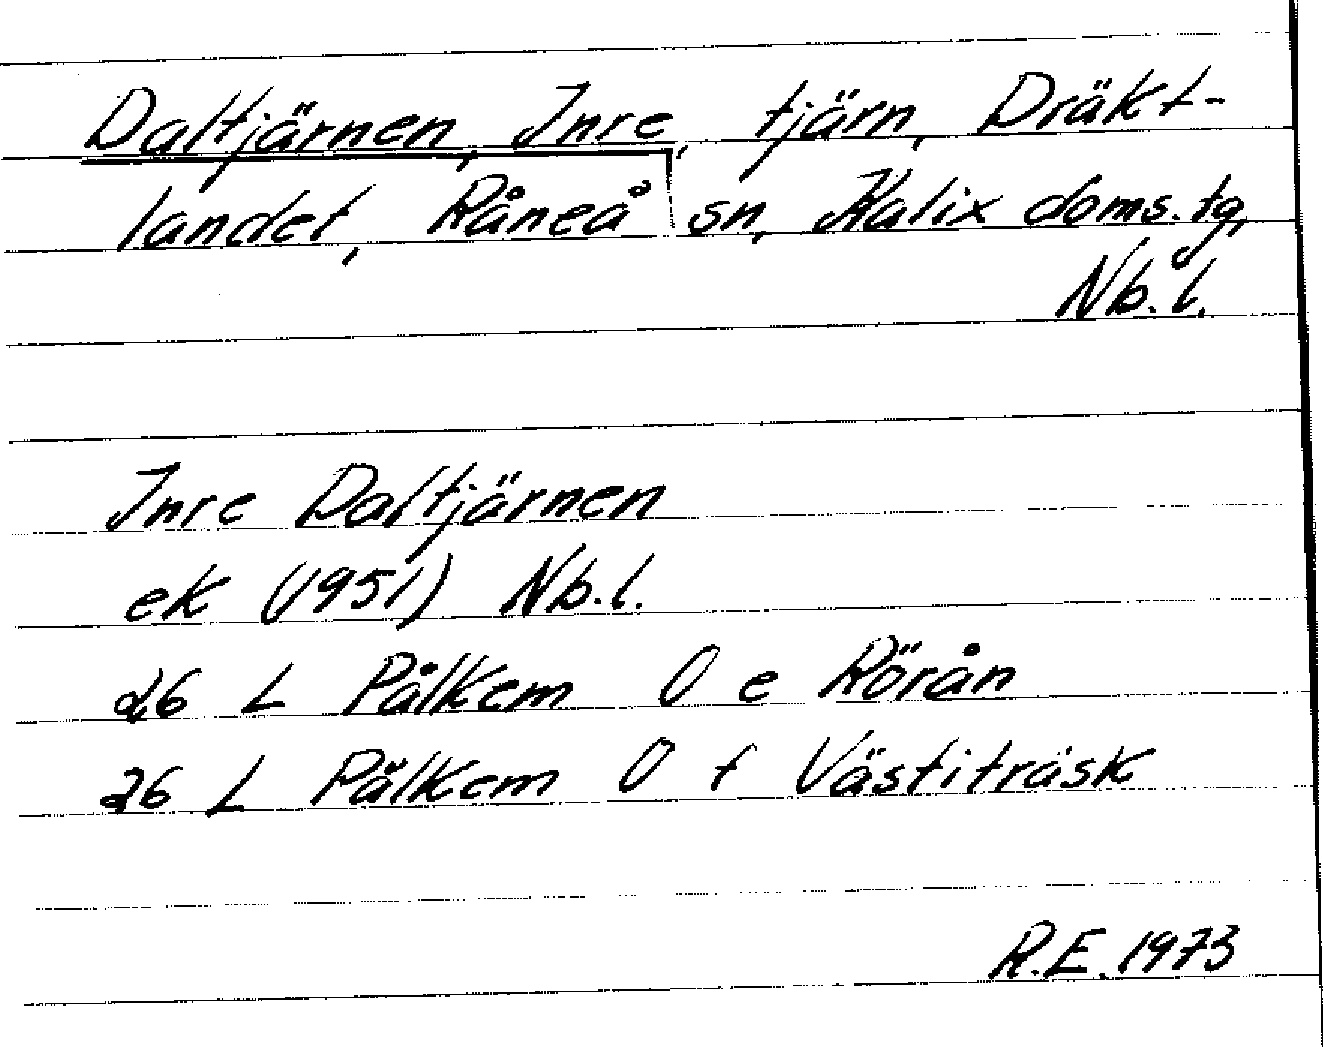 Daltjärnen, Inre, tjärn, Dräkt-
landet, Råneå sn, Kalix doms. tg,
Nb. l.
Inre Daltjärnen
ek (1951) Nb. l.
26 L Pålkem 0 e Rörån
26 L Pålkem 0 f Västiträsk
R.E. 1973